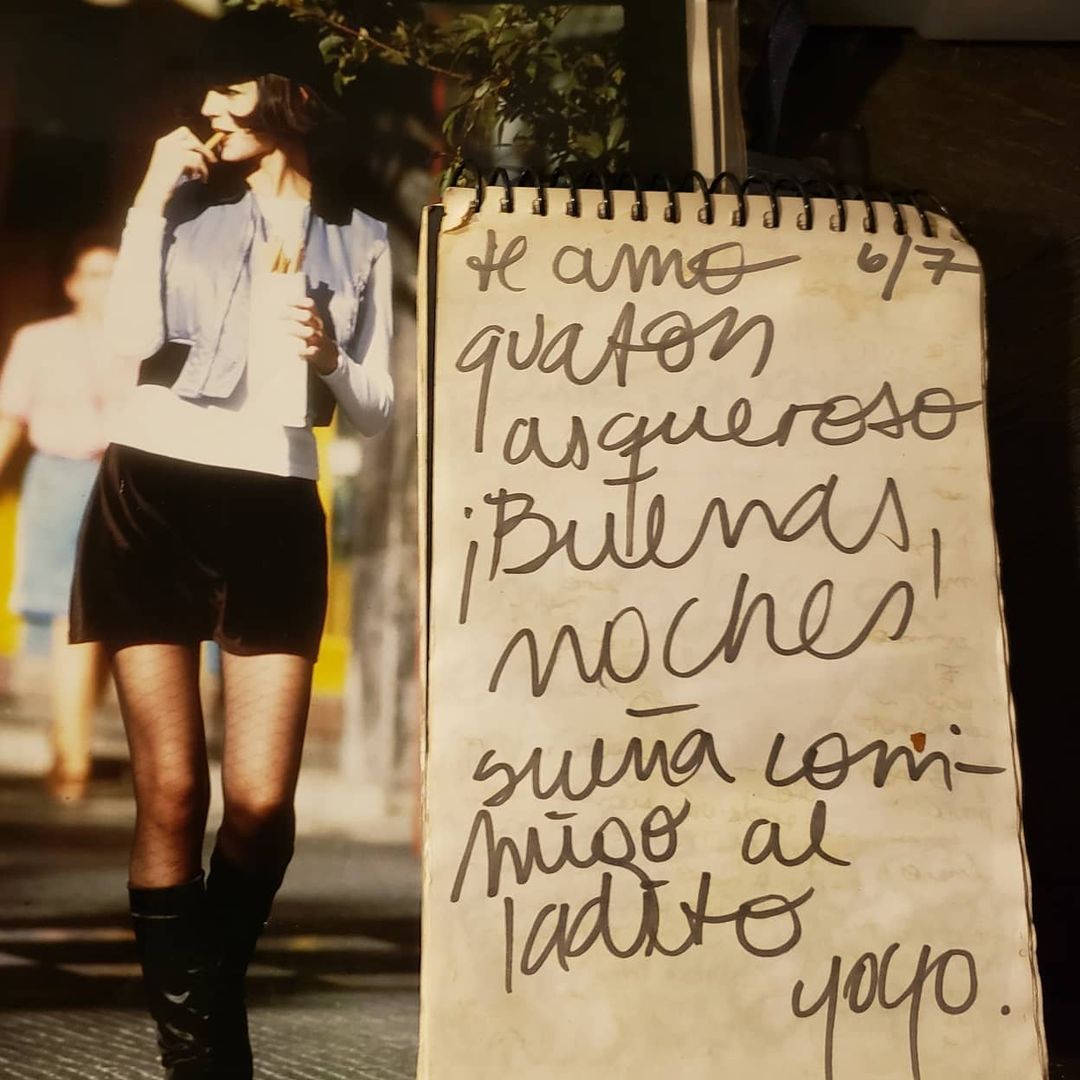 te amo 6/7
guaton
asqueroso
¡Buenas,
noches
sueña comi-
migo al
ladito
yoyo.